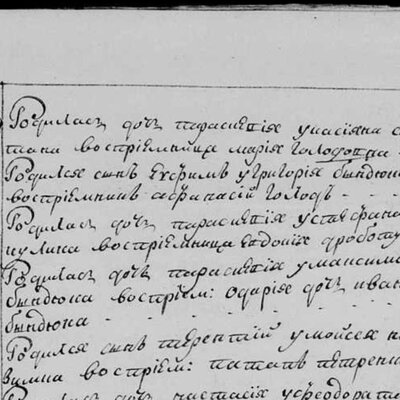 Родилась дочь параскевія у касіяна с
пана воспріемница марія голодовна
Родился сынъ Ефримъ у григорія бындюка
воспріемникъ афанасій голодъ
Родилась дочь параскевія у стефана
кулика воспріемница евдокія
Родилась дочь параскевія у максима
бындюка воспріем: одарія дочь иван
бындюка
Родился сынъ терентій у моисея
воспріем: потапъ петренк
Родилась дочь настасія у феодора